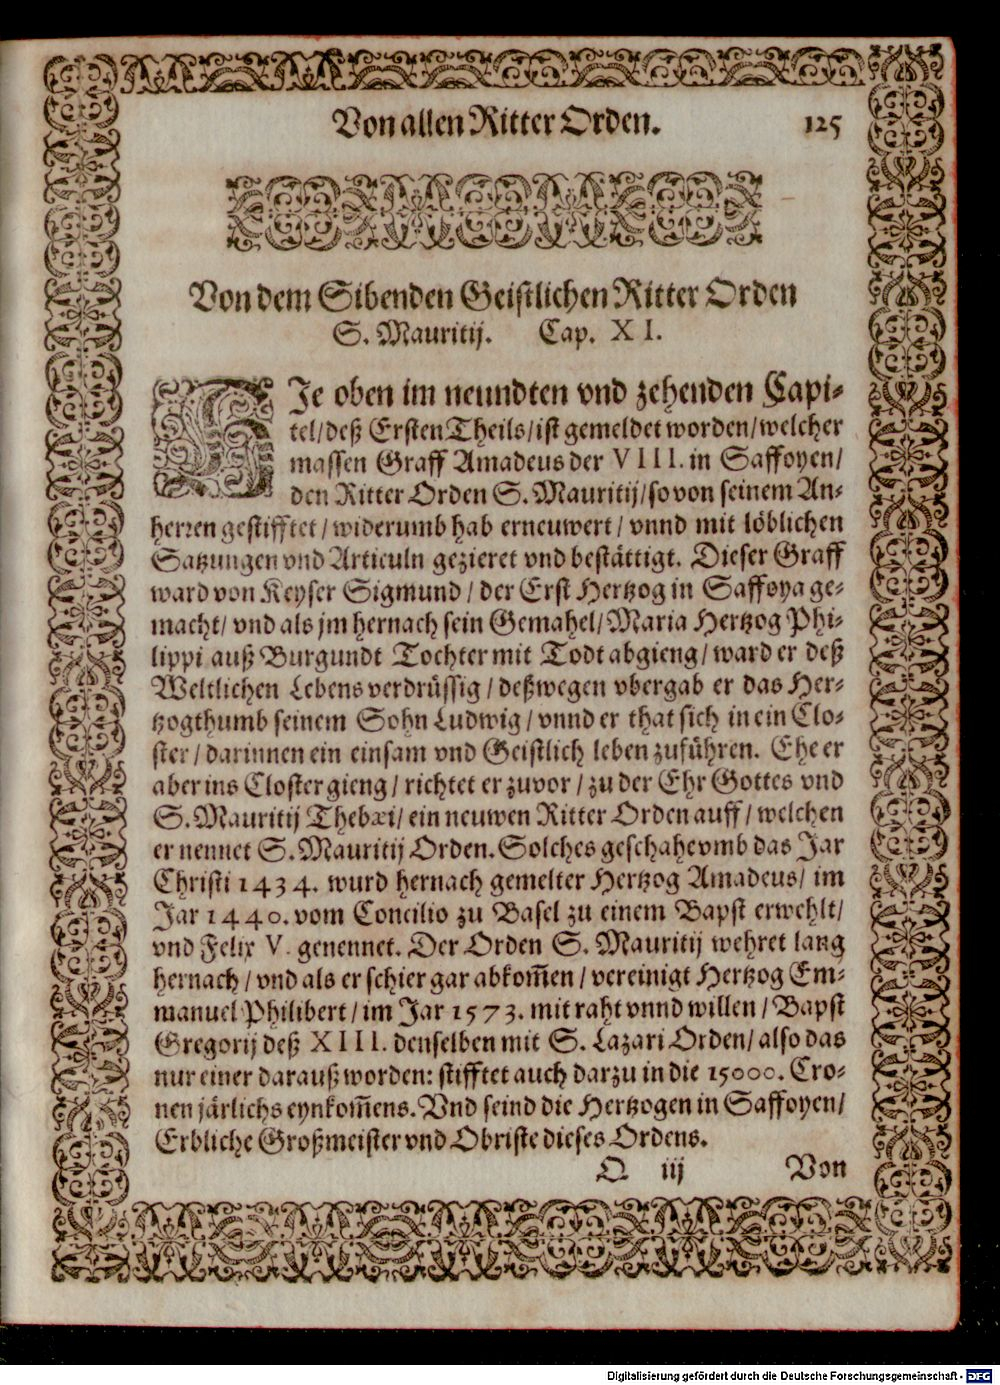 Von allen Ritter Orden. 125
Von dem Sibenden Geistlichen Ritter Orden
S. Mauritij. Cap. XI.
WIe oben im neundten vnd zehenden Capi-
tel/ deß Ersten Theils/ ist gemeldet worden/ welcher
massen Graff Amadeus der VIII. in Saffoyen/
den Ritter Orden S. Mauritij/ so von seinem An-
herren gestifftet/ widerumb hab erneuwert/ vnnd mit löblichen
Satzungen vnd Articuln gezieret vnd bestättigt. Dieser Graff
ward von Keyser Sigmund/ der Erst Hertzog in Saffoya ge-
macht/ vnd als jm hernach sein Gemahel/ Maria Hertzog Phi-
lippi auß Burgundt Tochter mit Todt abgieng/ ward er deß
Weltlichen Lebens verdrüssig/ deßwegen vbergab er das Her-
tzogthumb seinem Sohn Ludwig/ vnnd er that sich in ein Clo-
ster/ darinnen ein einsam vnd Geistlich leben zuführen. Ehe er
aber ins Closter gieng/ richtet er zuvor/ zu der Ehr Gottes vnd
S. Mauritij Thebæi/ ein neuwen Ritter Orden auff/ welchen
er nennet S. Mauritij Orden. Solches geschahe vmb das Jar
Christi 1434. wurd hernach gemelter Hertzog Amadeus/ im
Jar 1440. vom Concilio zu Basel zu einem Bapst erwehlt/
vnd Felix V. genennet. Der Orden S. Mauritij wehret lang
hernach/ vnd als er schier gar abkom̃en/ vereinigt Hertzog Em-
manuel Philibert/ im Jar 1573. mit raht vnnd willen/ Bapst
Gregorij deß XIII. denselben mit S. Lazari Orden/ also das
nur einer darauß worden: stifftet auch darzu in die 15000. Cro-
nen järlichs eynkom̃ens. Vnd seind die Hertzogen in Saffoyen/
Erbliche Großmeister vnd Obriste dieses Ordens.
Q iij Von
Digitalisierung gefördert durch die Deutsche Forschungsgemeinschaft - DFG